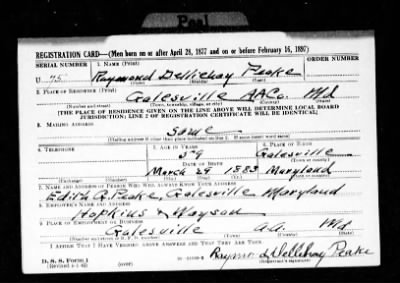 Peal
REGISTRATION CARD—(Men born on or after April 28, 1877 and on or before February 16, 1897)
SERIAL NUMBER 1. NAME (Print) ORDER NUMBER
U 75 Raymond Dellichay Peake
(First) (Middle) (Last)
2. PLACE OF RESIDENCE (Print)
Galesville AACo. Md
(Number and street) (Town, township, village, or city) (County) (State)
[THE PLACE OF RESIDENCE GIVEN ON THE LINE ABOVE WILL DETERMINE LOCAL BOARD
JURISDICTION; LINE 2 OF REGISTRATION CERTIFICATE WILL BE IDENTICAL]
3. MAILING ADDRESS
same
4. TELEPHONE 5. AGE IN YEARS 6. PLACE OF BIRTH
59 Galesville
DATE OF BIRTH (Town or county)
March 29 1883 Maryland
(Exchange) (Number) (Mo.) (Day) (Yr.) (State or country)
7. NAME AND ADDRESS OF PERSON WHO WILL ALWAYS KNOW YOUR ADDRESS
Edith A. Peake, Galesville Maryland
8. EMPLOYER'S NAME AND ADDRESS
Hopkins & Wayson
9. PLACE OF EMPLOYMENT OR BUSINESS
Galesville a.a. Md
(Number and street or R. F. D. number) (Town) (County) (State)
I AFFIRM THAT I HAVE VERIFIED ABOVE ANSWERS AND THAT THEY ARE TRUE.
D. S. S. Form 1
(Revised 4-1-42) (over)